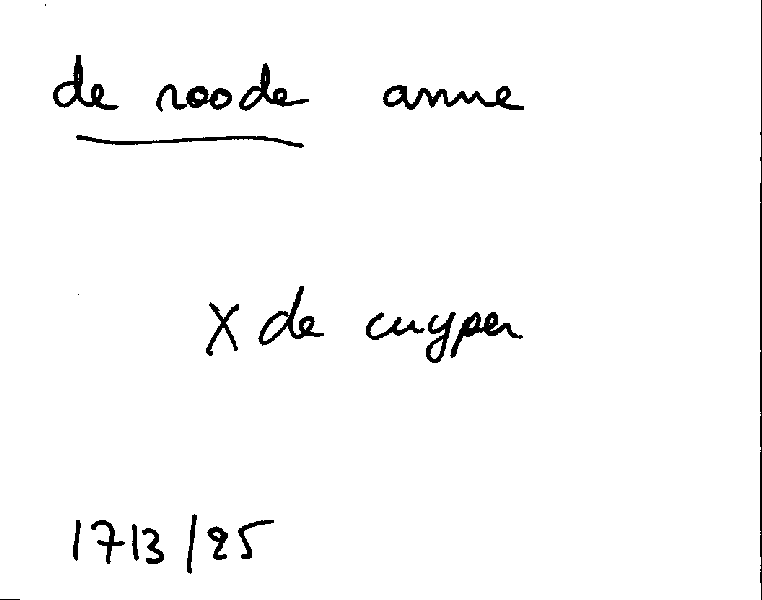 de roode anne
X de cuyper
1713/25